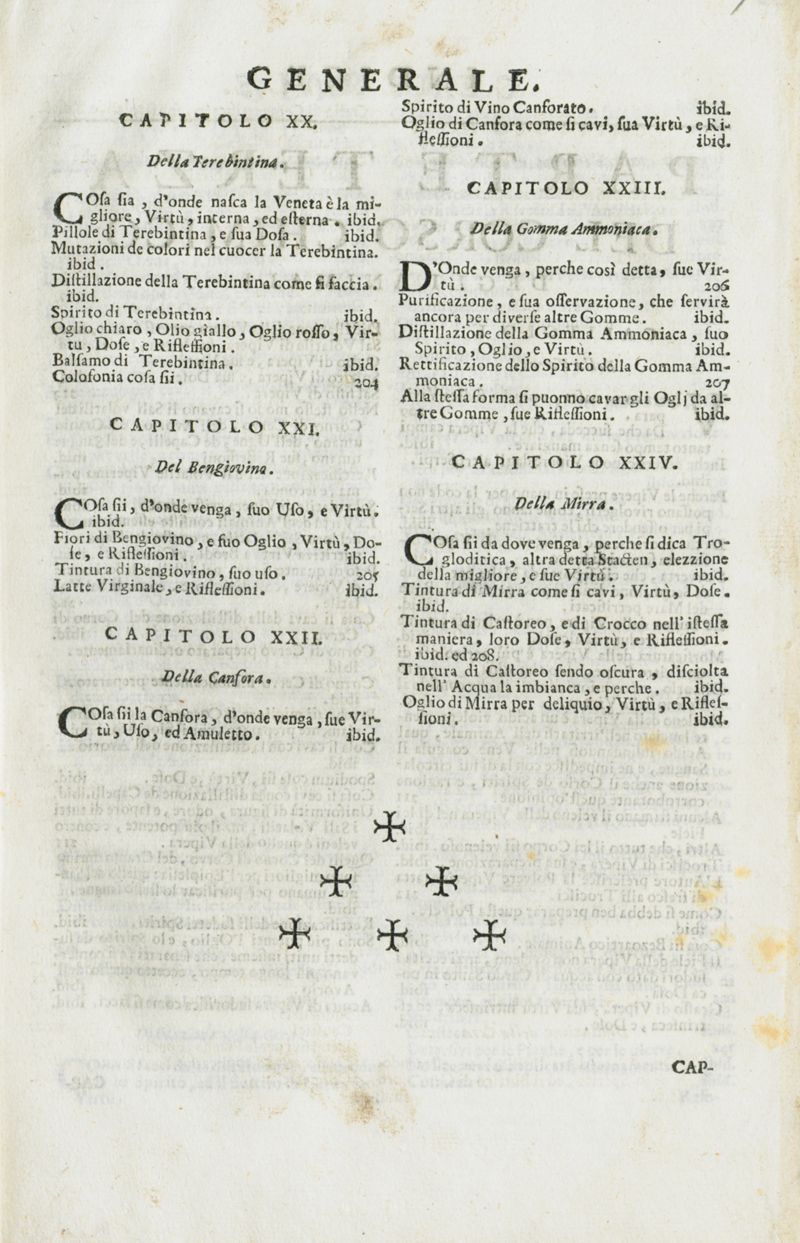 GENERALE.
CAPITOLO XX.
Della Terebintina.
COſa ſia , d'onde naſca la Veneta è la mi-
gliore, Virtù, interna, ed eſterna. ibid.
Pillole di Terebintina, e ſua Doſa. ibid.
Mutazioni de colori nel cuocer la Terebintina.
ibid.
Diſtillazione della Terebintina come ſi faccia.
ibid.
Spirito di Terebintina. ibid.
Oglio chiaro, Olio giallo, Oglio roſſo, Vir-
tu, Doſe, e Rifleſſioni.
Balſamo di Terebintina. ibid.
Colofonia coſa ſii. 204
CAPITOLO XXI.
Del Bengiovino.
COſa ſii, d'onde venga, ſuo Uſo, e Virtù.
ibid.
Fiori di Bengiovino, e ſuo Oglio, Virtù, Do-
ſe, e Rifleſſioni. ibid.
Tintura di Bengiovino, ſuo uſo. 205
Latte Virginale, e Rifleſſioni. ibid.
CAPITOLO XXII.
Della Canfora.
COſa ſii la Canfora, d'onde venga, ſue Vir-
tù, Uſo, ed Amuletto. ibid.
Spirito di Vino Canforato. ibid.
Oglio di Canfora come ſi cavi, ſua Virtù, e Ri-
fleſſioni. ibid.
CAPITOLO XXIII.
Della Gomma Ammoniaca.
D'Onde venga, perche così detta, ſue Vir-
tù. 206
Purificazione, e ſua oſſervazione, che ſervirà
ancora per diverſe altre Gomme. ibid.
Diſtillazione della Gomma Ammoniaca, ſuo
Spirito, Oglio, e Virtù. ibid.
Rettificazione dello Spirito della Gomma Am-
moniaca. 207
Alla ſteſſa forma ſi puonno cavar gli Oglj da al-
tre Gomme, ſue Rifleſſioni. ibid.
CAPITOLO XXIV.
Della Mirra.
COſa ſii da dove venga, perche ſi dica Tro-
gloditica, altra detta Stacten, elezzione
della migliore, e ſue Virtù. ibid.
Tintura di Mirra come ſi cavi, Virtù, Doſe.
ibid.
Tintura di Caſtoreo, e di Crocco nell' iſteſſa
maniera, loro Doſe, Virtù, e Rifleſſioni.
ibid. ed 208.
Tintura di Caſtoreo ſendo oſcura, diſciolta
nell' Acqua la imbianca, e perche. ibid.
Oglio di Mirra per deliquio, Virtù, e Rifleſ-
ſioni. ibid.
CAP-